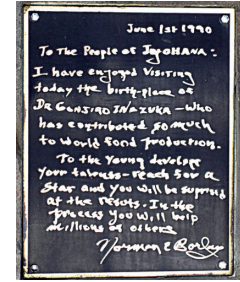 June 1st 1990
To The People of JOYOHANA:
I have enjoyed visiting
today the birth-place of
DR GONJIRO INAZUKA - Who
has contributed so much
to World food production.
To the young develop
your talents - reach for a
Star and you will be suprised
at the results. In the
process you will help
millions of others
Norman E Borlaug